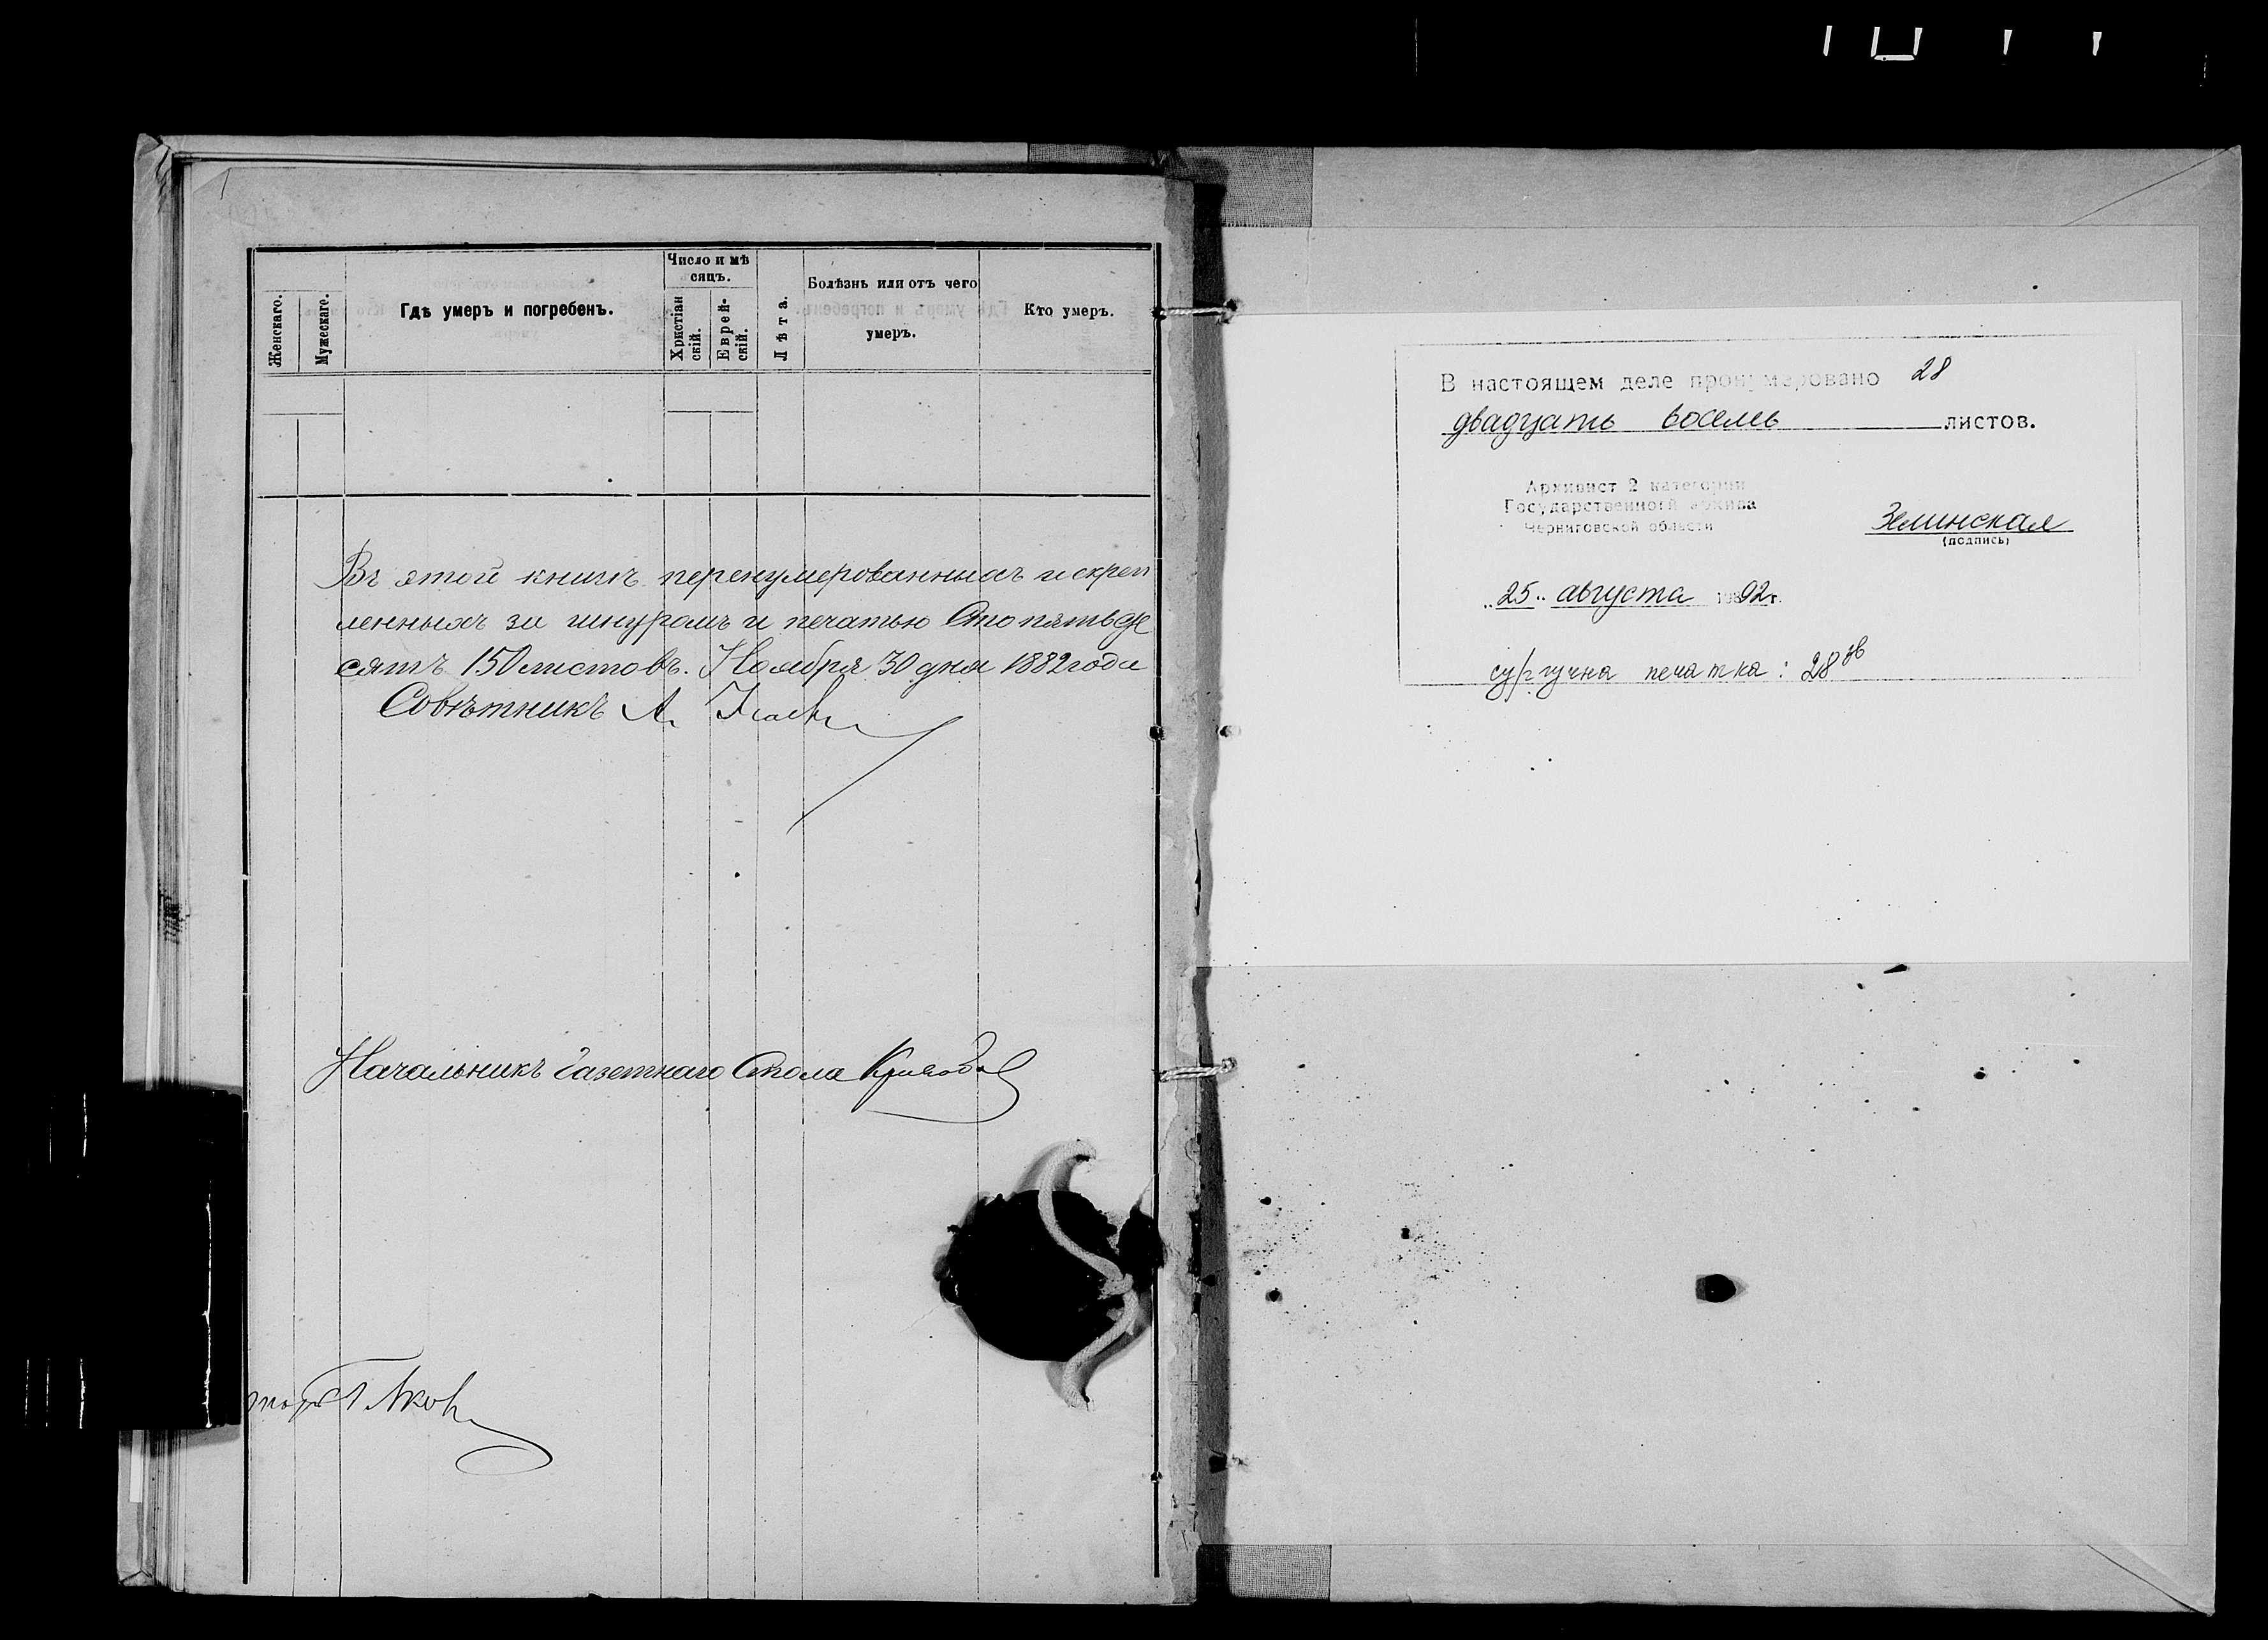 Женскаго.
Мужескаго.
Гдѣ умеръ и погребенъ.
Число и мѣ
сяцъ.
Христіан
скій.
Еврей-
скій.
Лѣта.
Болѣзнь или отъ чего
умеръ.
Кто умеръ.
Въ этой книгѣ перенумерованныхъ и скреп
ленныхъ за шнуромъ и печатью Сто пятьде
сятъ 150 листовъ. Ноября 30 дня 1882 года
Совѣтникъ А.
Начальникъ Газетнаго Стола
В настоящем деле пронумеровано 28
двадцать восемь листов.
Архивист 2 категории
Государственного архива
Черниговской области
Зелинская
(подпись)
"25" августа 1992 г.
сургучна печатка: 28 зв